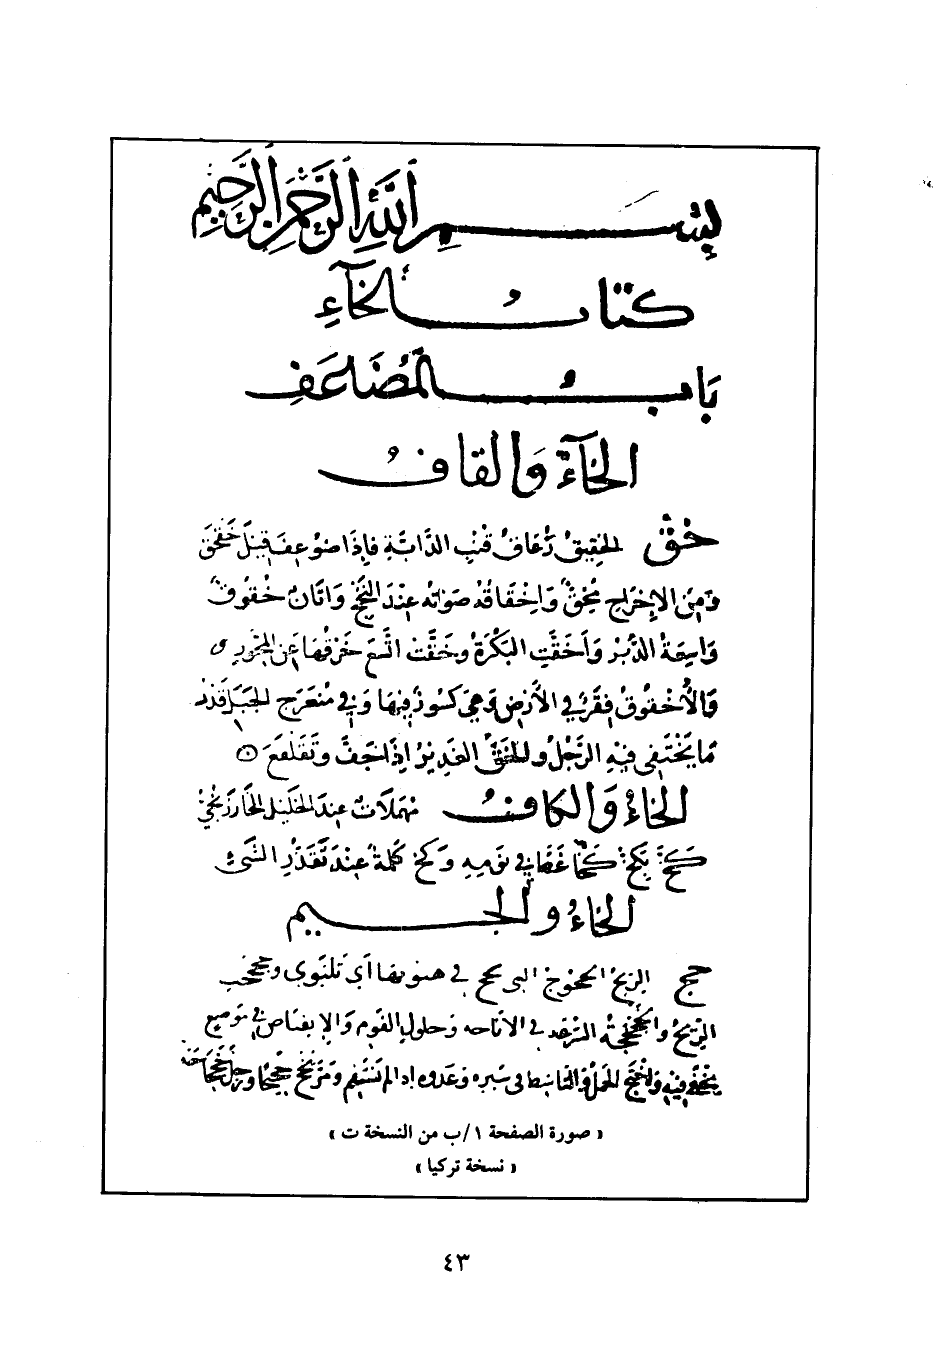 بِسْمِ اللَّهِ الرَّحْمٰنِ الرَّحِيمِ
كتابُ الخآءِ
بَابُ المُضَاعَفِ
الخآءُ وَالقافُ
خق الخقيقُ زُعاقُ قُنْبِ الدَّابَّةِ فإذَا ضُوعِفَ قِيلَ خَقْخَقَ
وَمِنَ الإخْرَاجِ وَاخْقَاقُهُ صَوْتُه عِنْدَ النَّخْجِ وَأتَانٌ خَقُوقٌ
وَاسِعَةُ الدُّبُرِ وَأَخَقَّتِ البَكْرَةُ وَخَقَّتْ اتَّسَعَ خَرْقُهَا عَنِ المِحْوَرِ
وَالأُخْقُوقُ فِقَرٌ في الأَرْضِ وَهِيَ كُسُورٌ فِيهَا وَفِي مُنْعَرَجِ الجَبَلِ قَدْرُ
مَا يَخْتَفِي فِيْهِ الرَّجُلُ وَالخَقُّ الغَدِيرُ إذَا جَفَّ وَتَقَلْفَعَ
الخَاءُ وَالكَافُ مُهْمَلَاتٌ عِندَ الخليلِ الخارزنجيُّ
كَخَّ يَكِخُّ كَخّاً غَطَّ في نَوْمِهِ وَكخ كَلِمَةٌ عِنْدَ تَقَذُّرِ الشَّيْءِ
الخَاءُ وَالجيم
خج الرِّيحُ الخجوجُ التي تخج في هبوبها أي تلتوي وخجخجت
الرِّيحُ والخَجْخَجَةُ التوحُّد في الاناخه وَحلولِ القَوم وَالإنقباض في موضع
يُخْتَفَى فِيْهِ الجمل والناشط في سيره وَعدوه اذا لم يستقم وَمَرَّ يخج خجيجاً ورجل خَجَّاجَة
« صورة الصفحة ١/ب من النسخة ت »
« نسخة تركيا »
٤٣